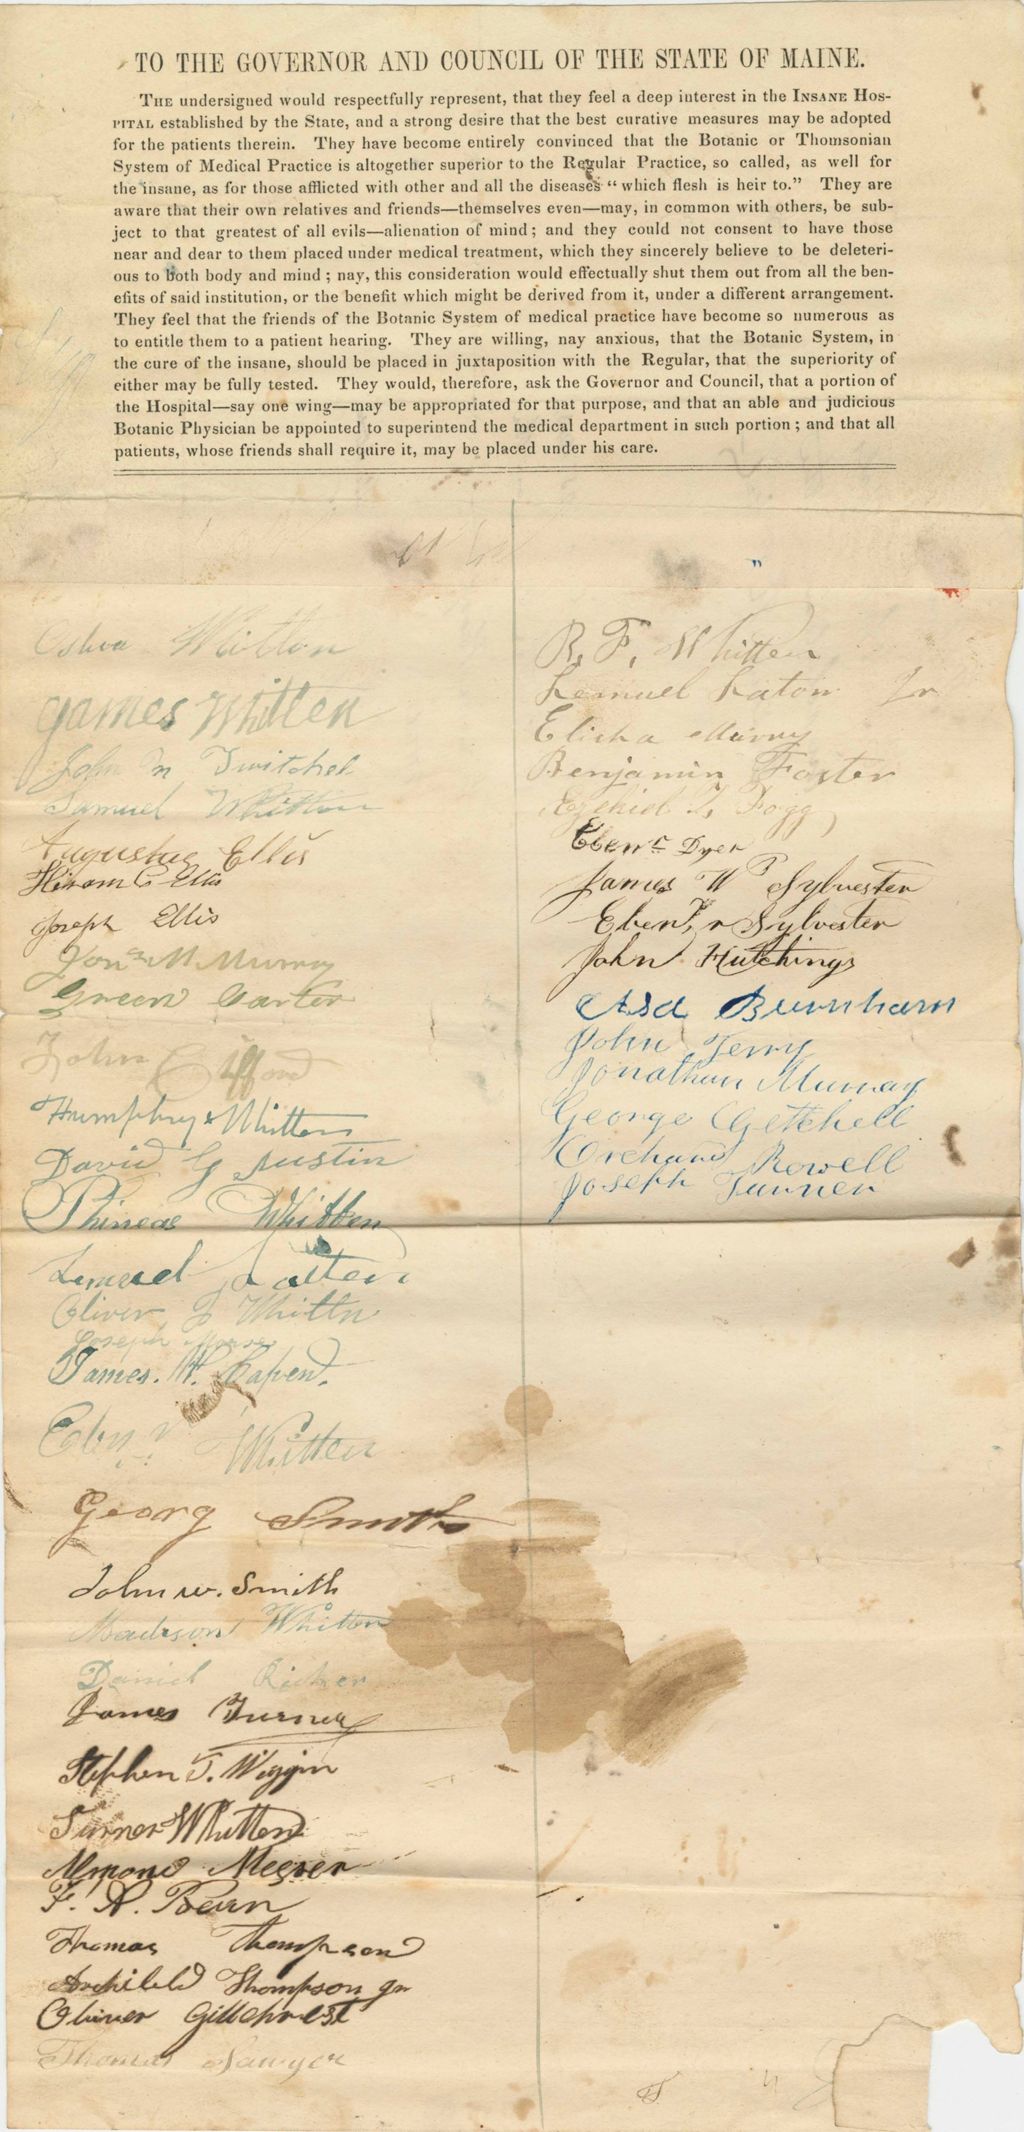 TO THE GOVERNOR AND COUNCIL OF THE STATE OF MAINE.
THE undersigned would respectfully represent, that they feel a deep interest in the INSANE HOS-
PITAL established by the State, and a strong desire that the best curative measures may be adopted
for the patients therein. They have become entirely convinced that the Botanic or Thomsonian
System of Medical Practice is altogether superior to the Regular Practice, so called, as well for
the insane, as for those afflicted with other and all the diseases "which flesh is heir to." They are
aware that their own relatives and friends—themselves even—may, in common with others, be sub-
ject to that greatest of all evils—alienation of mind; and they could not consent to have those
near and dear to them placed under medical treatment, which they sincerely believe to be deleteri-
ous to both body and mind; nay, this consideration would effectually shut them out from all the ben-
efits of said institution, or the benefit which might be derived from it, under a different arrangement.
They feel that the friends of the Botanic System of medical practice have become so numerous as
to entitle them to a patient hearing. They are willing, nay anxious, that the Botanic System, in
the cure of the insane, should be placed in juxtaposition with the Regular, that the superiority of
either may be fully tested. They would, therefore, ask the Governor and Council, that a portion of
the Hospital—say one wing—may be appropriated for that purpose, and that an able and judicious
Botanic Physician be appointed to superintend the medical department in such portion; and that all
patients, whose friends shall require it, may be placed under his care.
Whitton
James Whitten
John M Twitchel
Samuel Whitten
Augustus Ellis
Hiram C Ellis
Joseph Ellis
Jona M Murray
Green Carter
John Clifford
Humphrey Whitten
David G Austin
Phineas Whitten
Lemuel
Oliver Whitten
Joseph Morse
James. W.
Whitten
Georg Smith
John w. Smith
Madison Whitten
Daniel Ricker
James Turner
Stephen T. Wiggin
Turner Whitten
Almond Meserv
F. A. Bean
Thomas Thompson
Archibald Thompson Jr
Oliver Gillchrest
Thomas Sawyer
R. F. Whitten
Lemuel Eaton Jr
Elisha Murray
Benjamin Foster
Ezekiel T. Fogg
Ebenr Dyer
James W P Sylvester
Ebenr Sylvester
John Hutchings
Asa Burnham
John Terry
Jonathan Murray
George Getchell
Orchard Rowell
Joseph Turner